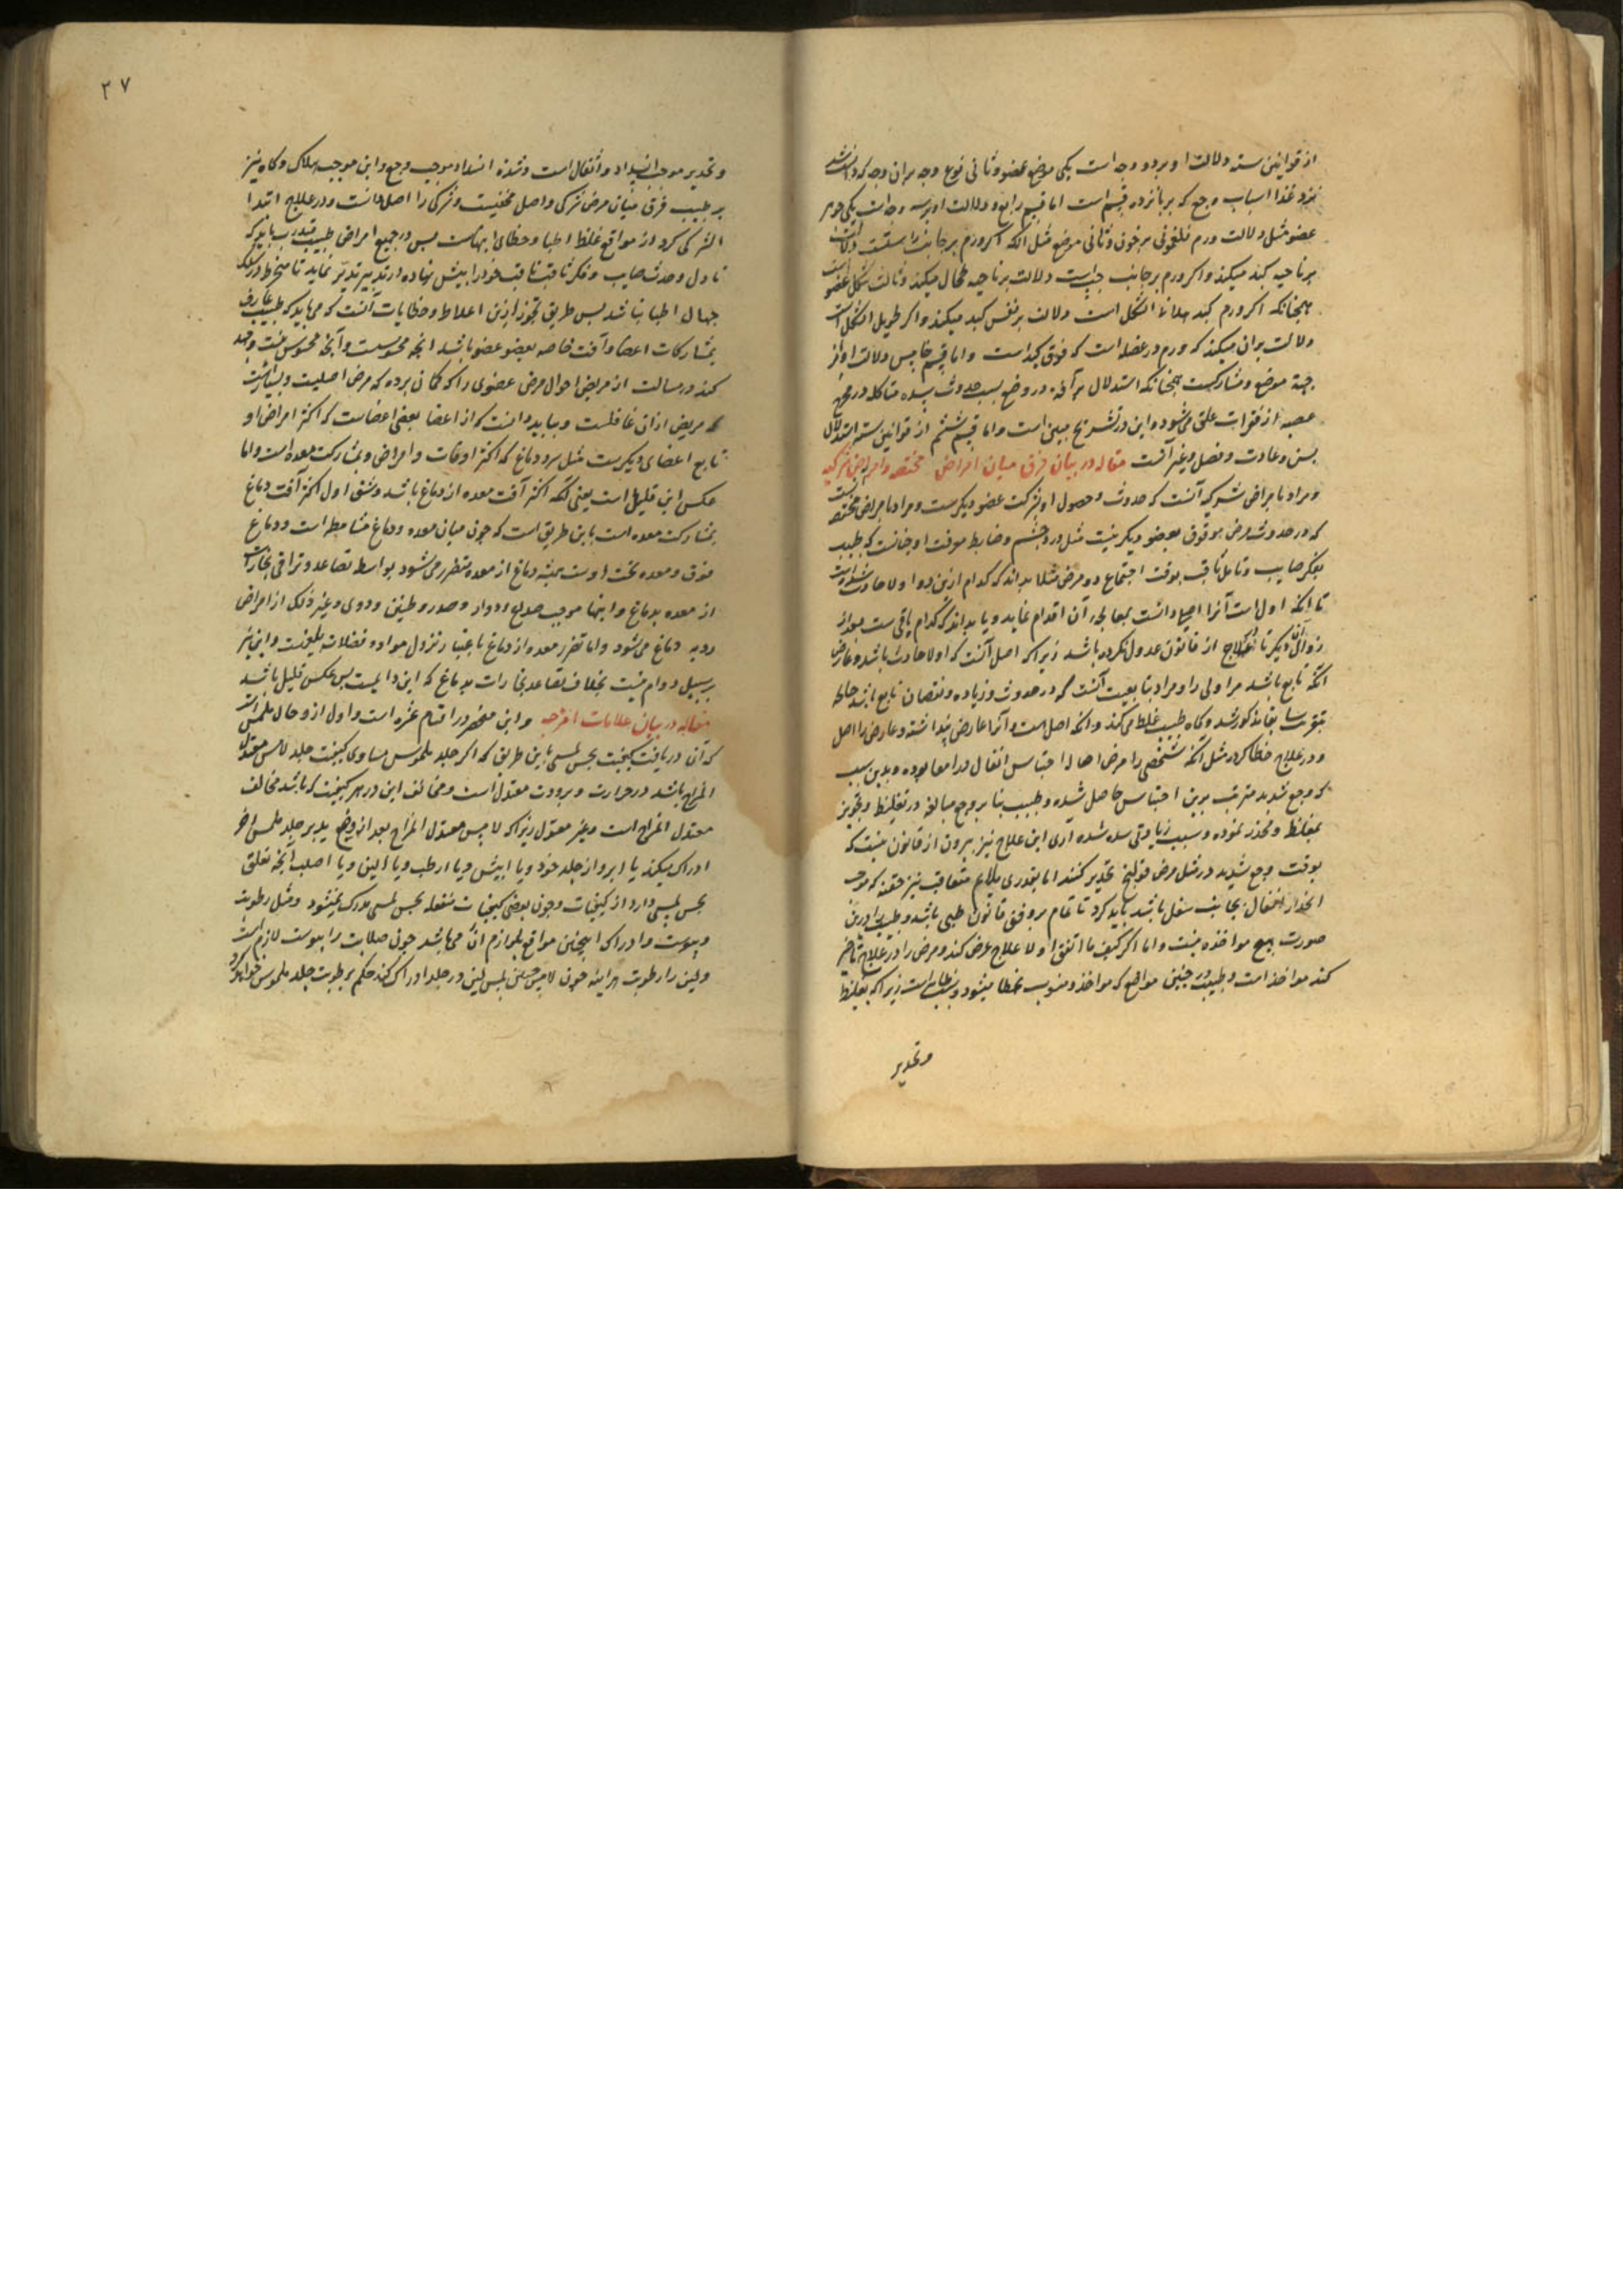 از قوانین سته دلالت او بر دو وجه است یکی موضع عضو و ثانی نوع وجه بر آن وجه که دانسته شد
نزد عد اسباب وجع که بر پانزده قسم است اما قسم رابع ورم و دلالت او بر سه وجه است یکی جوهر
عضو مثل دلالت ورم فلغمونی بر خون و ثانی موضع مثل آنکه اکر ورم بر جانب راستست دلالت
بر ناحیه کبد میکند و اکر ورم بر جانب چپ است دلالت بر ناحیه طحال میکند و ثالث شکل عضو است
همچنانکه اکر ورم کبد هلالی الشکل است دلالت بر نفس کبد میکند و اکر طویل الشکل است
دلالت بر آن میکند که ورم در عضله است که فوق کبد است و اما قسم خامس دلالت او از
جهة موضع و مشارکت همچنانکه استدلال بر آفة در وضع بسبب حدوث سده متاکله در مخرج
عصبه از فقرات علق میشود و این در تشریح مبین است و اما قسم ششم از قوانین سته استدلال
بسن و عادت و فصل و غیر آنست مقاله در بیان فرق میان امراض مختصه و امراض شرکیه
و مراد بامراض شرکیه آنست که حدوث و حصول او بشرکت عضو دیکرست و مراد بامراض مختصه آنست
که در حدوث مرض موقوف بعضو دیکر نیست مثل درد چشم و ضابط معرفت او چنانست که طبیب
بفکر صایب و تامل ثاقب بوقت اجتماع دو مرض مثلا بداند که کدام ازین دو اولا حادث شده است
تا آنکه اول است آنرا اصیل دانست بمعالجه آن اقدام نماید و یا بداند که کدام باقی ست بعد از
زوال دیکر تا در علاج از قانون عدول نکرده باشد زیرا که اصل آنست که اولا حادث باشد و عارض
آنکه تابع باشد مر اولی را و مراد بتابعیت آنست که در حدوث و زیاده و نقصان تابع باشد چنانکه
سابقا مذکور شد و کاه طبیب غلط میکند و آنکه اصل است آنرا عارض پنداشته و عارض را اصل
و در علاج خطا کرده مثل آنکه شخصی را مرض احتباس اثفال در امعا بوده و بدین سبب
که وجع شدید مترتب برین احتباس حاصل شده و طبیب بنا بر وجع مبالغه در تغلیظ و تجویز
بمغلظ و مخدر نموده و سبب زیادتی سده شده آری این علاج نیز بیرون از قانون نیست که
بوقت وجع شدید در مثل مرض قولنج تخدیر کنند اما بقدری ملایم متعاقب نیز حقنه که موجب
انحدار اثفال بجانب سفل باشد باید کرد تا تمام بر وفق قانون طبی باشد و طبیب را درین
صورت هیچ مواخذه نیست و اما اکر کیف ما اتفق اولا علاج عرض کند و مرض را در علاج تاخیر
کند مواخذ است و طبیب در چنین مواضع که مواخذ و منسوب بخطا میشود و سبب خطاست زیرا که تغلیظ
و تخدیر
۲۷
و تخدیر موجب انسداد و اثفال است و شدة انسداد موجب وجع و این موجب هلاک و کاه نیز
بر طبیب فرق میان مرض شرکی و اصل مخفیست و شرکی را اصل دانست و در علاج ابتدا
الشرکی کرد از مواقع غلط اطبا و خطای اینهاست پس در جمیع امراض طبیب باید که
تا دل و حدث صایب و فکر ثاقب خود را پیش نهاده در تدبیر تدبر نماید تا منخرط در سلک
جهال اطبا نباشد پس طریق تحرز ازین اغلاط و خطایات آنست که می باید که طبیب عارف
بمشارکات اعضا و آفت خاصه بعضو عضو باشد آنچه محسوست و آنچه محسوس نیست و جهد
کند در مسالت از مریض احوال مرض عضوی را که کمان برده که مرض اصلیست و بسا هست
که مریض ازان غافلست و بباید دانست که از اعضا بعضی اعضاست که اکثر امراض او
تابع اعضای دیکرست مثل سر و دماغ که اکثر اوقات و امراض وی بمشارکت معده است و اما
عکس این قلیل است یعنی آنکه اکثر آفت معده از دماغ باشد و شق اول اکثر آفت دماغ
بمشارکت معده است باین طریق است که چون میان معده و دماغ مشابطه است و دماغ
فوق و معده تحت اوست همیشه دماغ از معده متضرر میشود بواسطه تصاعد و تراقی بخارات
از معده بدماغ و اینها موجب صداع و دوار و صدر و طنین و دوی و غیر ذلک از امراض
ردیه دماغ میشود و اما تضرر معده از دماغ باعتبار نزول مواد و فضلات بلیغست و این نیز
بر سبیل دوام نیست بخلاف تصاعد بخارات بدماغ که این دایمست پس عکس قلیل باشد
مقاله در بیان علامات امزجه و این منحصر در اقسام عشره است و اول از و حال ملمس است
که آن دریافت کیفیت بحس لمسی باین طریق که اکر جلد ملموس مساوی کیفیت جلد لامس معتدل
المزاج باشد در حرارت و برودت معتدل است و مخالف این در هر کیفیت که باشد مخالف
معتدل المزاج است و غیر معتدل زیرا که لامس معتدل المزاج بعد از وضع ید بر جلد ملمس آخر
ادراک میکند یا ابرد از جلد خود و یا ایبس و یا ارطب و یا الین و یا اصلب آنچه تعلق
بحس لمسی دارد از کیفیات و چون بعضی کیفیات منفعله بحس لمسی مدرک نمیشود و مثل رطوبت
و یبوست و ادراک اینچنین مواقع بلوازم آن میباشد چون صلابت مر یبوست لازم است
و لین را رطوبت هر آینه چون لامس لین در جلد ادراک کند حکم بر رطوبت جلد ملموس خواهد کرد